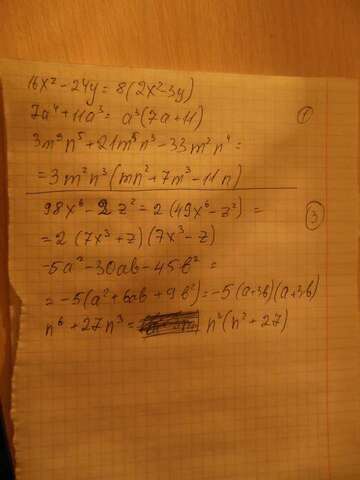 16x² - 24y = 8(2x² - 3y)
7a⁴ + 11a³ = a³(7a + 11)
①
3m³n⁵ + 21m⁵n³ - 33m²n⁴ =
= 3m²n³(mn² + 7m³ - 11n)
98x⁶ - 2z² = 2(49x⁶ - z²) =
③
= 2(7x³ + z)(7x³ - z)
-5a² - 30ab - 45b² =
= -5(a² + 6ab + 9b²) = -5(a+3b)(a+3b)
n⁶ + 27n³ = n²(n² + 27)